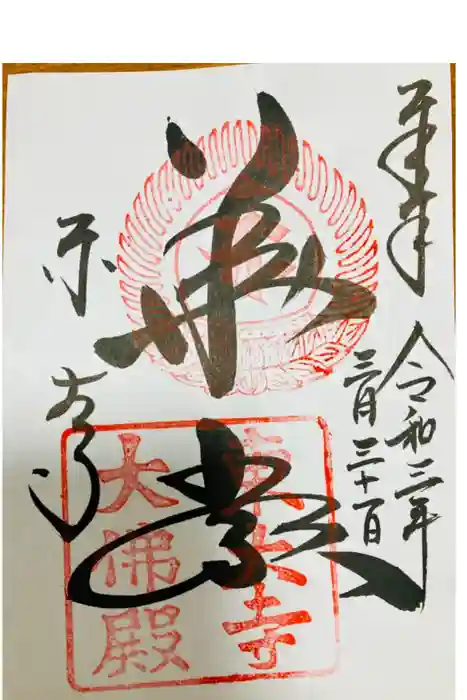 奉拝
令和三年
三月三十日
華厳
東大寺
東大寺
大佛殿